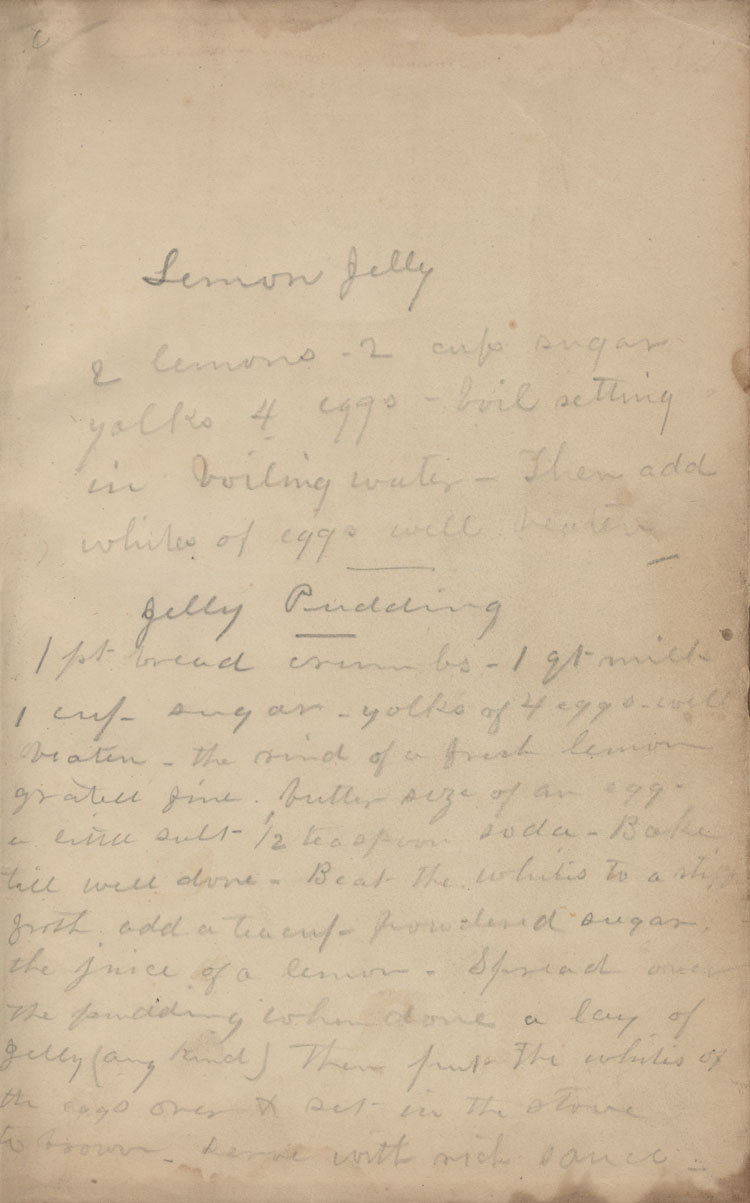 6
Lemon Jelly
2 lemons - 2 cups sugar
yolks 4 eggs - boil setting
in boiling water - Then add
whites of eggs well beaten
Jelly Pudding
1 pt bread crumbs - 1 qt milk
1 cup - sugar - yolks of 4 eggs - well
beaten - the rind of a fresh lemon
grated fine. butter size of an egg -
a little salt - 1/2 teaspoon soda - Bake
till well done - Beat the whites to a stiff
froth. add a teacup - powdered sugar.
the juice of a lemon - Spread over
the pudding when done a lay of
Jelly (any kind) Then put The whites of
the eggs over & set in the stove
to brown - serve with rich sauce -